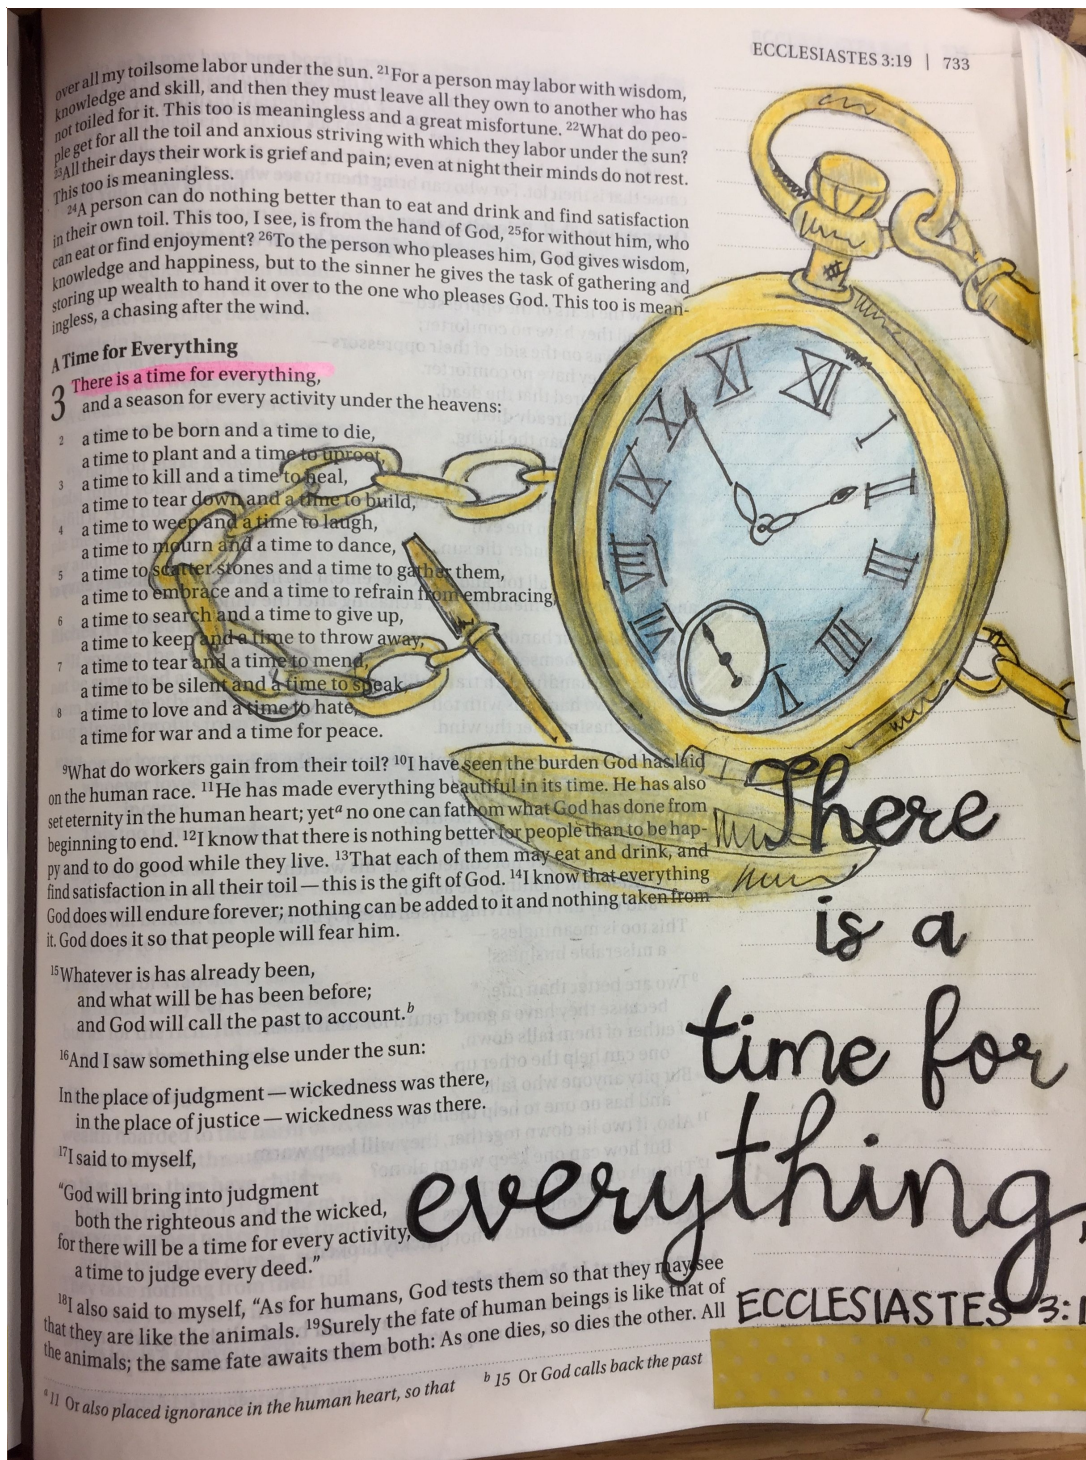 ECCLESIASTES 3:19 | 733
over all my toilsome labor under the sun. 21For a person may labor with wisdom,
knowledge and skill, and then they must leave all they own to another who has
not toiled for it. This too is meaningless and a great misfortune. 22What do peo-
ple get for all the toil and anxious striving with which they labor under the sun?
23All their days their work is grief and pain; even at night their minds do not rest.
This too is meaningless.
24A person can do nothing better than to eat and drink and find satisfaction
in their own toil. This too, I see, is from the hand of God, 25for without him, who
can eat or find enjoyment? 26To the person who pleases him, God gives wisdom,
knowledge and happiness, but to the sinner he gives the task of gathering and
storing up wealth to hand it over to the one who pleases God. This too is mean-
ingless, a chasing after the wind.
A Time for Everything
3 There is a time for everything,
and a season for every activity under the heavens:
2 a time to be born and a time to die,
a time to plant and a time to uproot,
3 a time to kill and a time to heal,
a time to tear down and a time to build,
4 a time to weep and a time to laugh,
a time to mourn and a time to dance,
5 a time to scatter stones and a time to gather them,
a time to embrace and a time to refrain from embracing,
6 a time to search and a time to give up,
a time to keep and a time to throw away,
7 a time to tear and a time to mend,
a time to be silent and a time to speak,
8 a time to love and a time to hate,
a time for war and a time for peace.
9What do workers gain from their toil? 10I have seen the burden God has laid
on the human race. 11He has made everything beautiful in its time. He has also
set eternity in the human heart; yeta no one can fathom what God has done from
beginning to end. 12I know that there is nothing better for people than to be hap-
py and to do good while they live. 13That each of them may eat and drink, and
find satisfaction in all their toil — this is the gift of God. 14I know that everything
God does will endure forever; nothing can be added to it and nothing taken from
it. God does it so that people will fear him.
15Whatever is has already been,
and what will be has been before;
and God will call the past to account.b
16And I saw something else under the sun:
In the place of judgment — wickedness was there,
in the place of justice — wickedness was there.
17I said to myself,
"God will bring into judgment
both the righteous and the wicked,
for there will be a time for every activity,
a time to judge every deed."
18I also said to myself, "As for humans, God tests them so that they may see
that they are like the animals. 19Surely the fate of human beings is like that of
the animals; the same fate awaits them both: As one dies, so dies the other. All
a 11 Or also placed ignorance in the human heart, so that b 15 Or God calls back the past
XII
I
II
III
IIII
V
VII
VIII
IX
X
XI
There
is a
time for
everything,
ECCLESIASTES 3:1